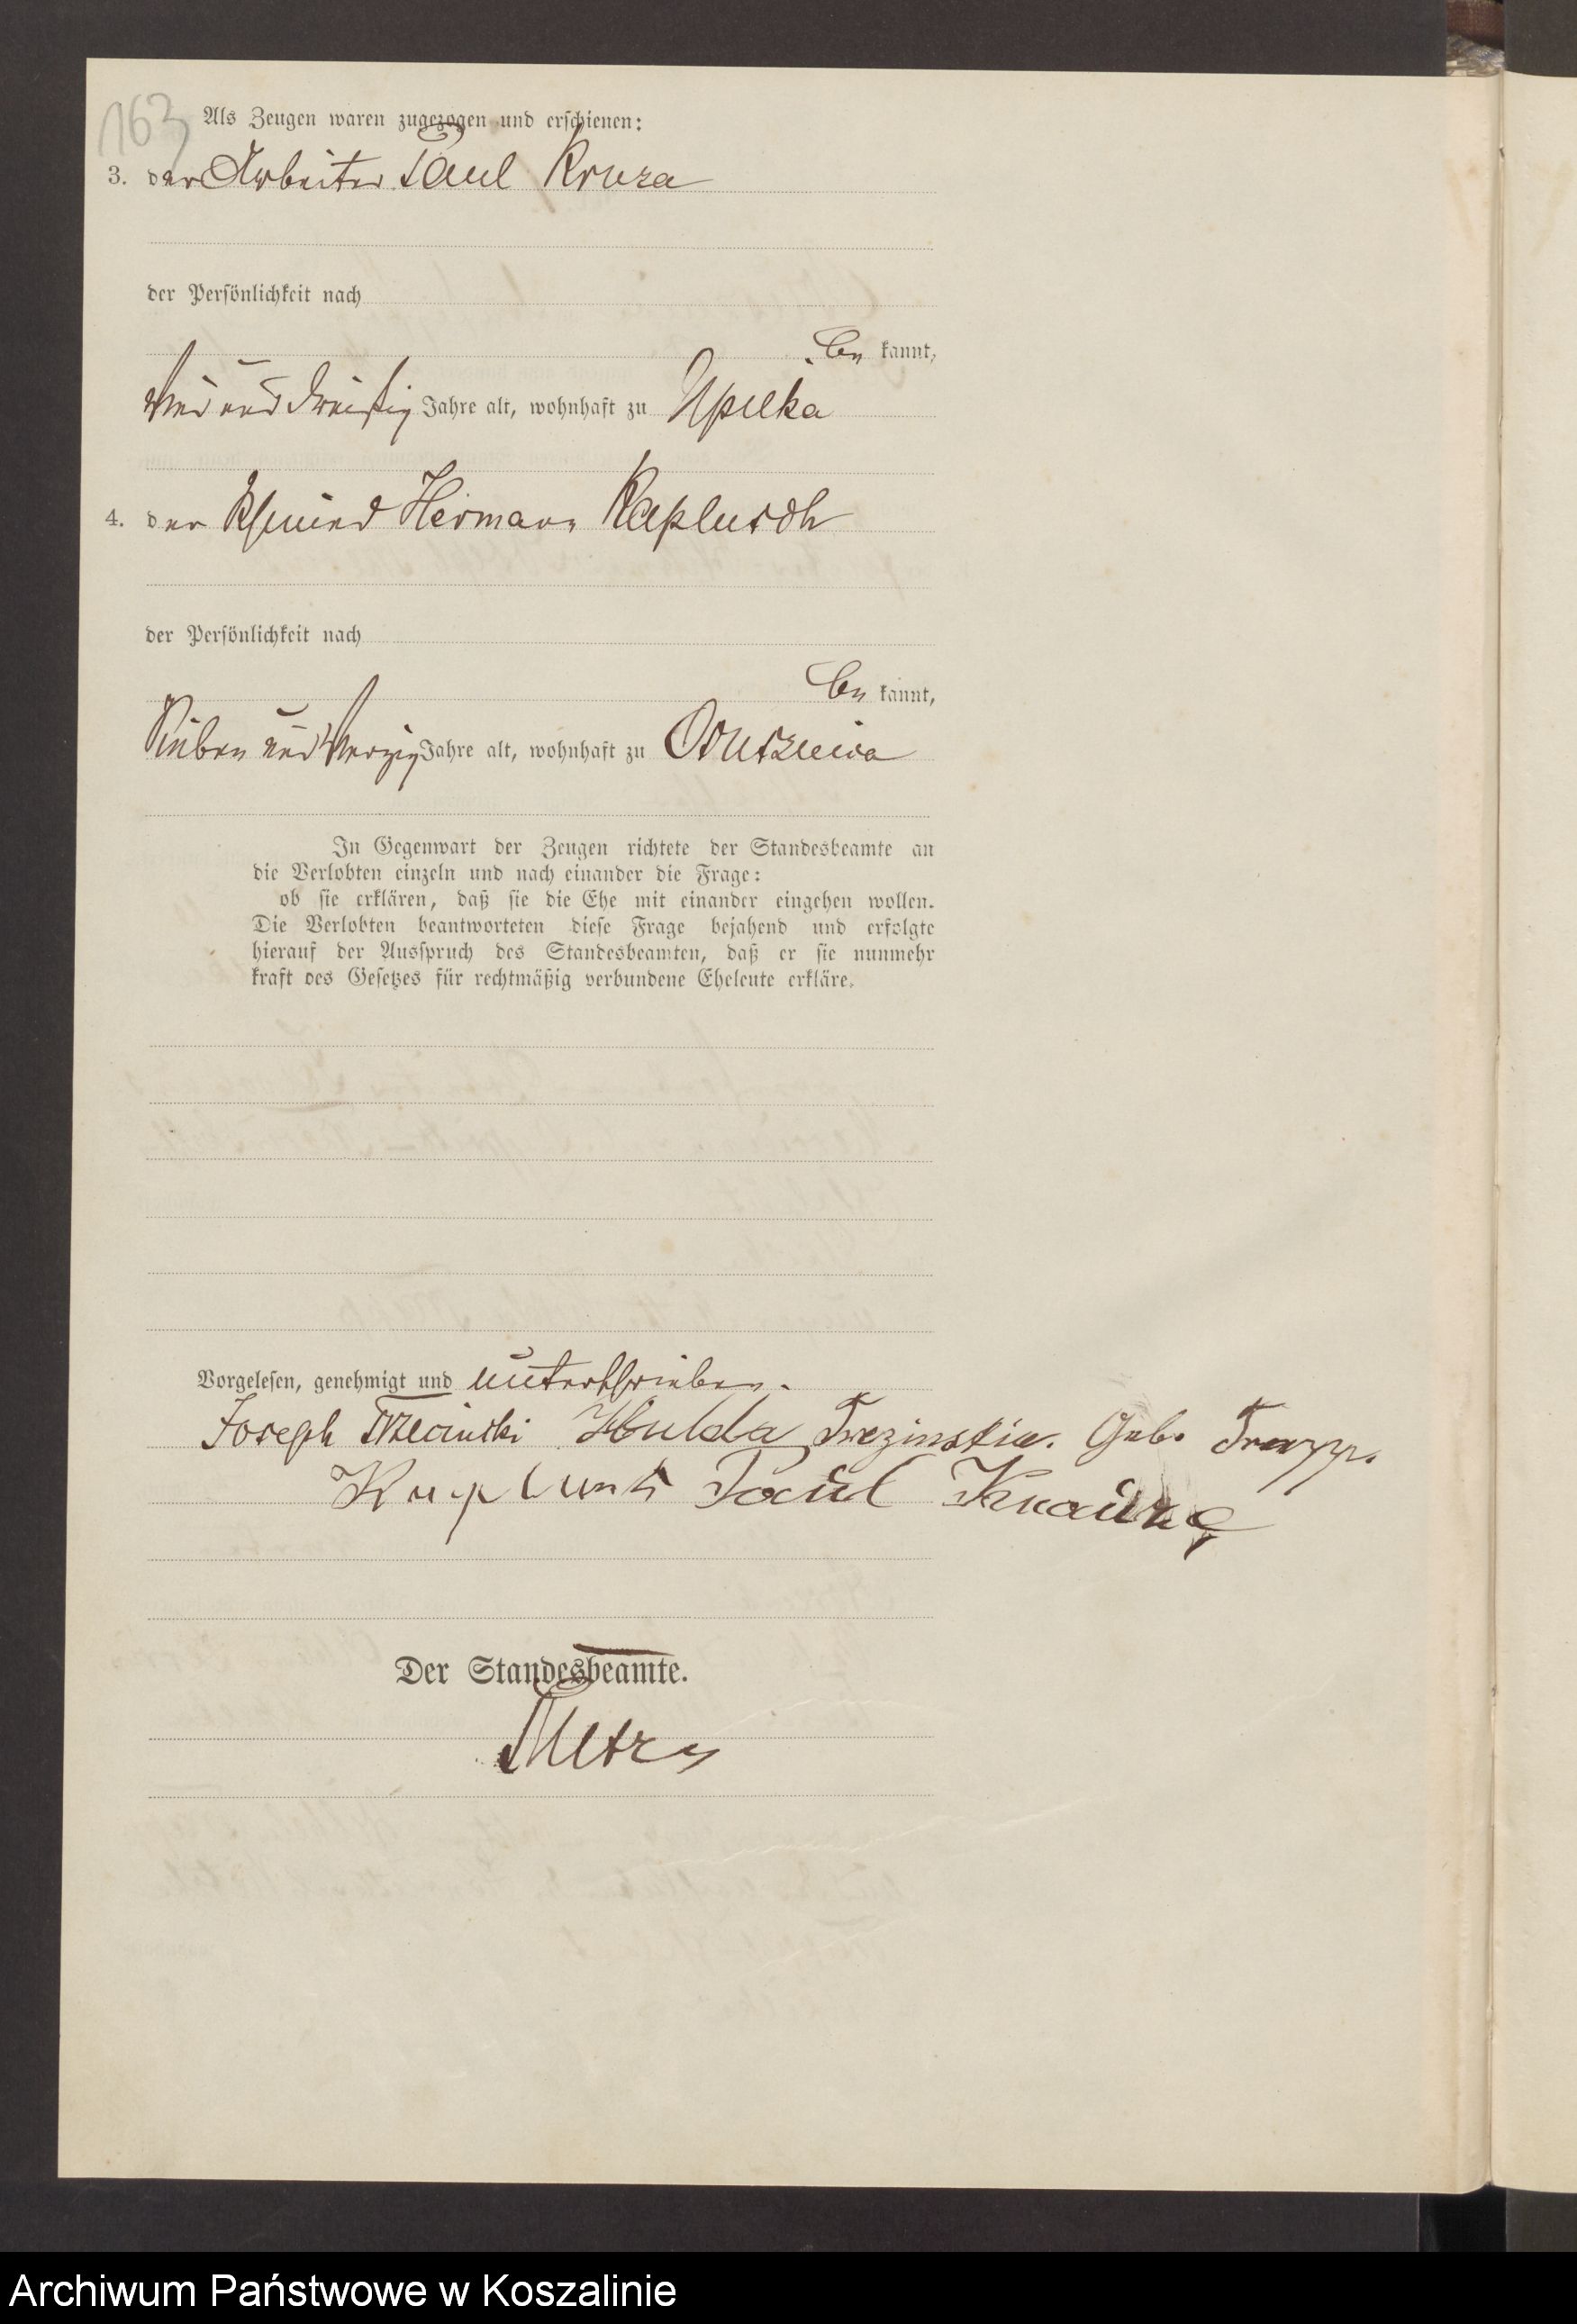 163
Als Zeugen waren zugezogen und erschienen:
3. der Arbeiter Paul
der Persönlichkeit nach
be kannt,
vier und dreißig Jahre alt, wohnhaft zu Upilka
4. der Schmied Hermann Kaplusch
der Persönlichkeit nach
be kannt,
Sieben und vierzig Jahre alt, wohnhaft zu
In Gegenwart der Zeugen richtete der Standesbeamte an
die Verlobten einzeln und nach einander die Frage:
ob sie erklären, daß sie die Ehe mit einander eingehen wollen.
Die Verlobten beantworteten diese Frage bejahend und erfolgte
hierauf der Ausspruch des Standesbeamten, daß er sie nunmehr
kraft des Gesetzes für rechtmäßig verbundene Eheleute erkläre.
Vorgelesen, genehmigt und unterschrieben.
Joseph Trzecinski Hulda Geb. Trapp.
Paul
Der Standesbeamte.
Archiwum Państwowe w Koszalinie